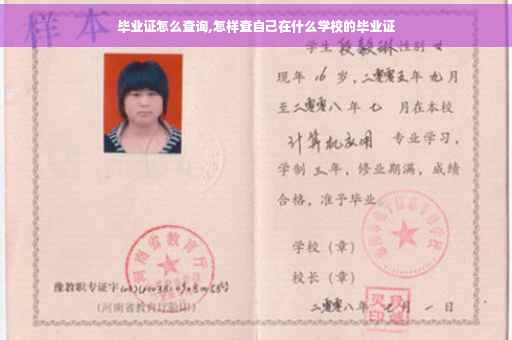 毕业证怎么查询,怎样查自己在什么学校的毕业证
样本
学生段毅琳性别女
现年16岁,二零零五年九月
至二零零八年七月在本校
计算机应用 专业学习,
学制三年,修业期满,成绩
合格,准予毕业
学校(章)
校长(章)
二零零八年 月一日
河南省教育厅
豫教职专证字
(河南省教育厅验印)